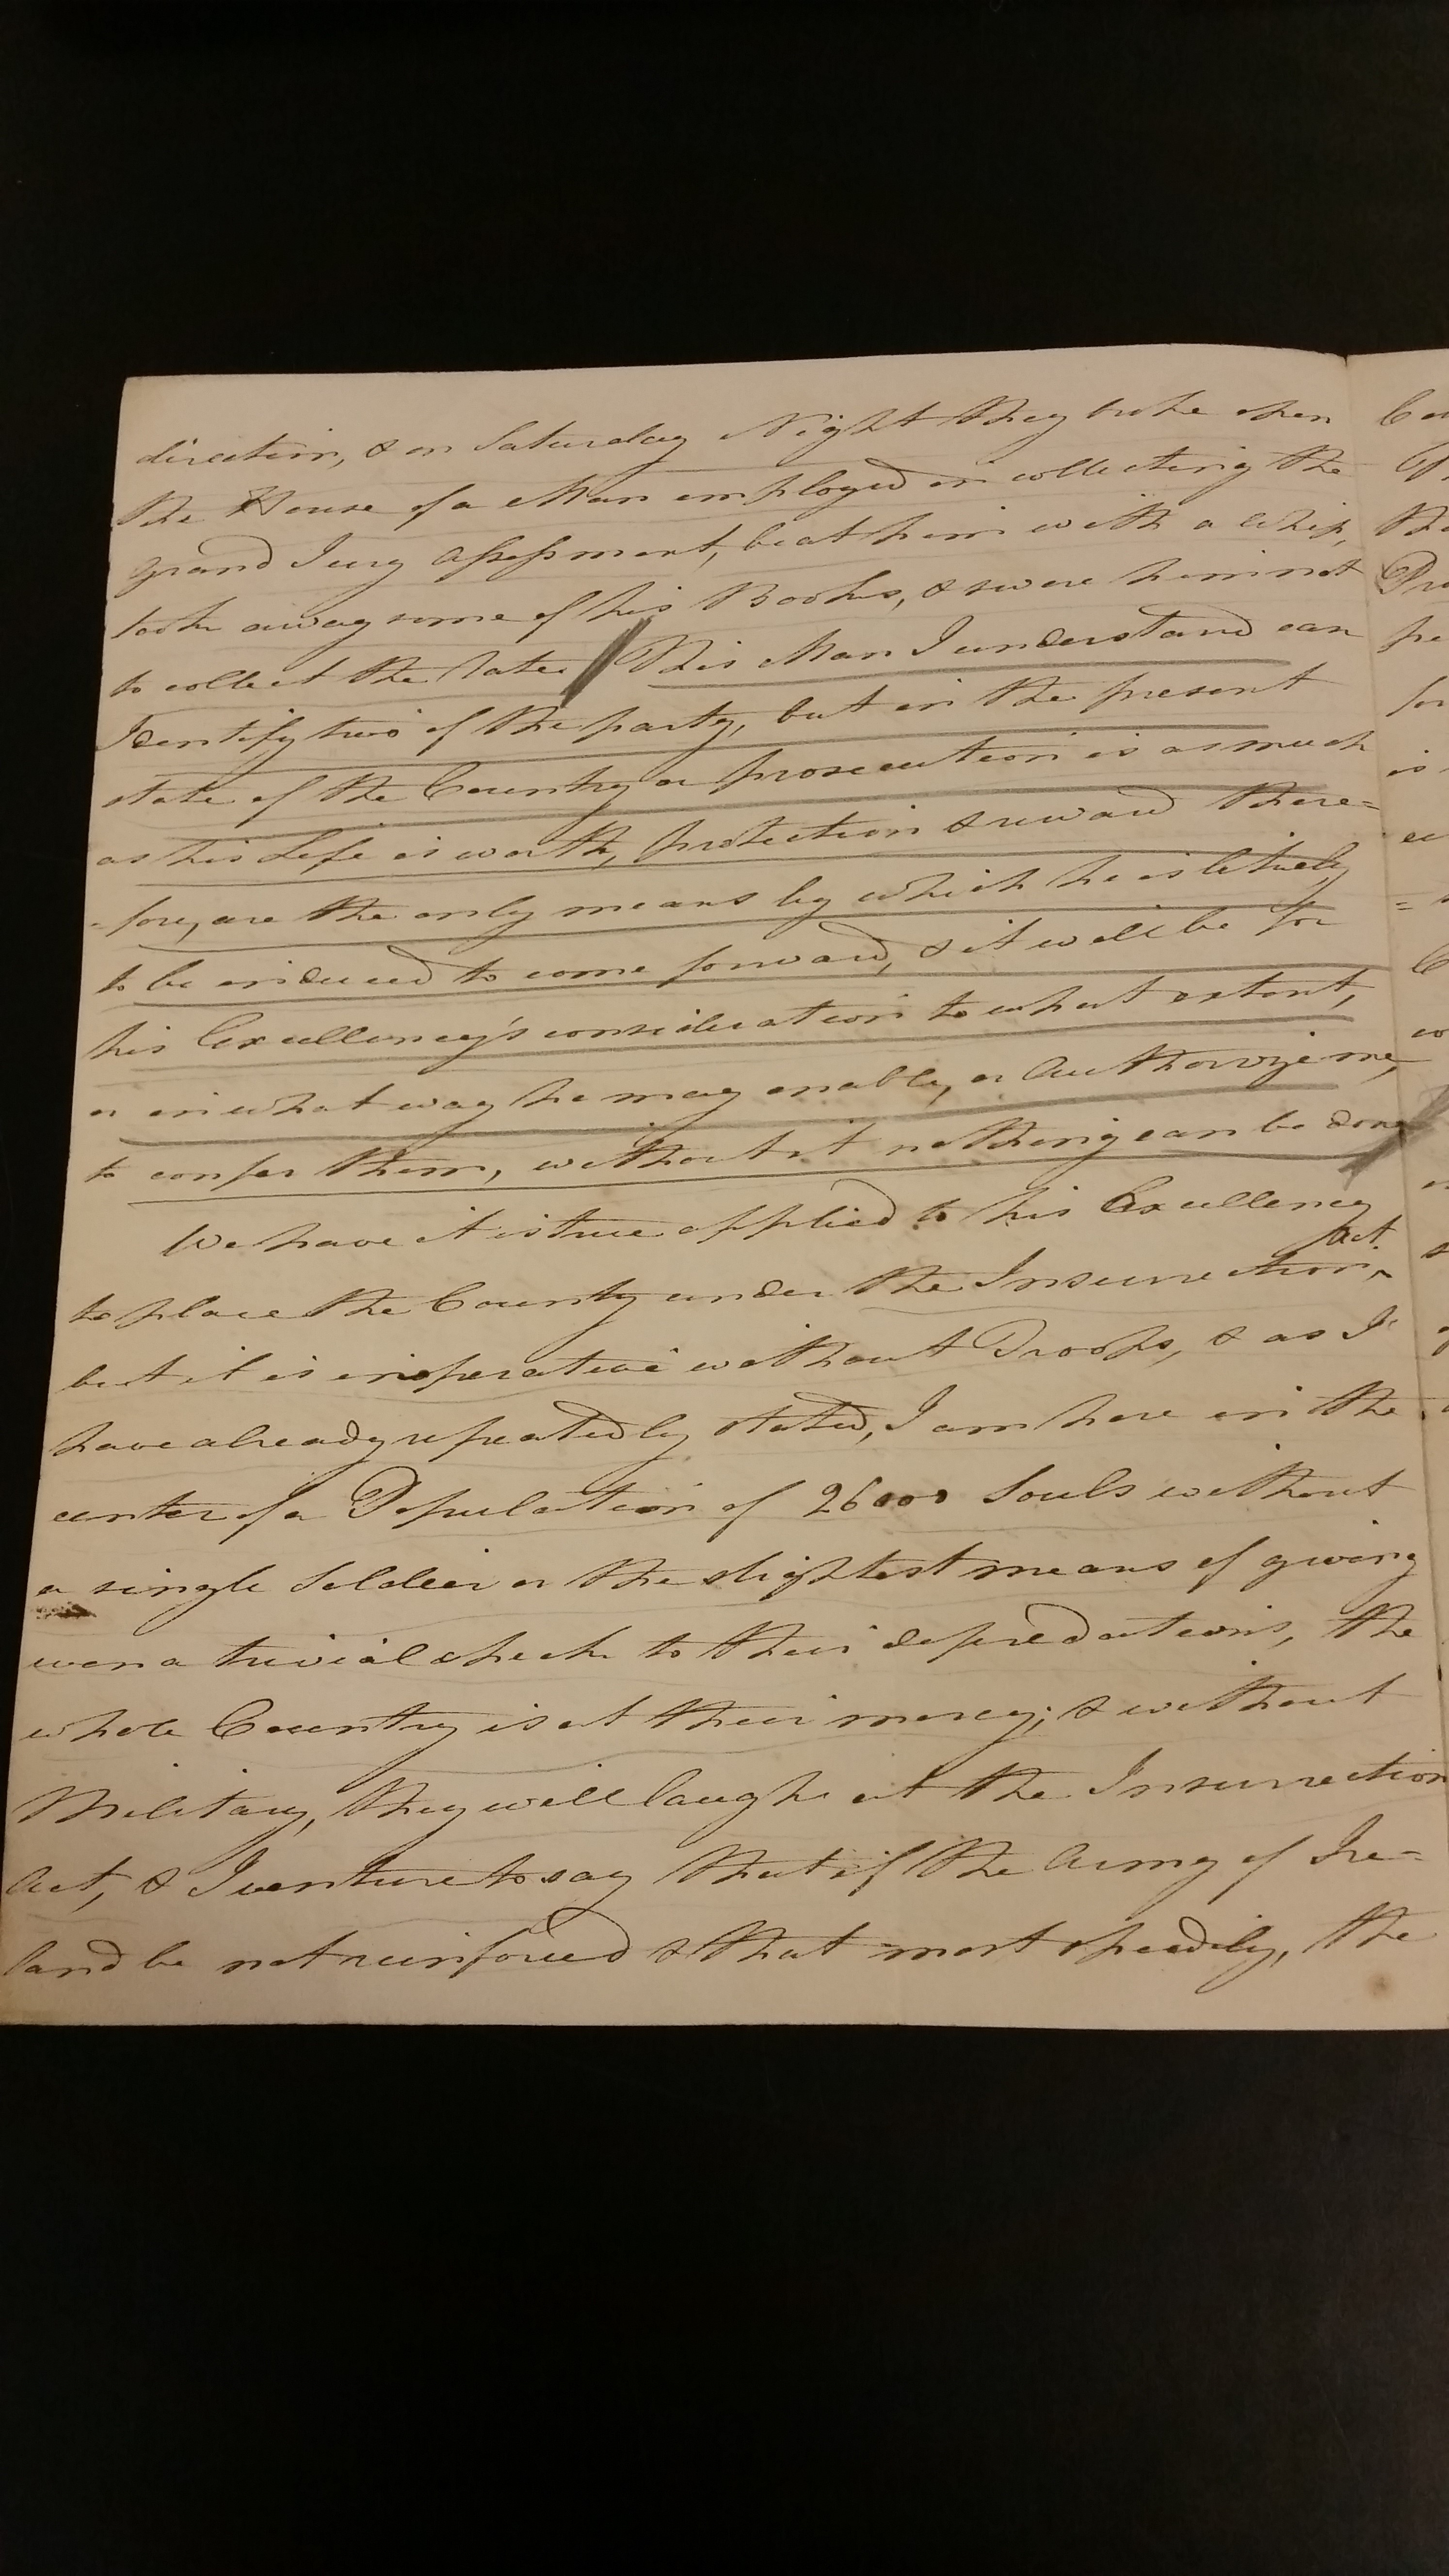 direction, & on Saturday Night they broke open
the House of a Man employed in collecting the
grand Jury assessment, beat him with a whip,
took away some of his Books, & swore him not
to collect the rates. This Man I understand can
Identify two of the party, but in the present
state of the Country a prosecution is as much
as his Life is worth, protection & reward there=
=fore, are the only means by which he is likely
to be induced to come forward, & it will be for
his Excellency's consideration to what extent,
or in what way he may enable, or Authorize me,
to confer them, without it nothing can be done
We have it is true applied to his Excellency
to place the County under the Insurrection Act
but it is inoperative without Troops, & as I
have already repeatedly stated, I am here in the
center of a Population of 26000 Souls without
a single Soldier or the slightest means of giving
even a trivial check to their depredations, the
whole Country is at their mercy; & without
Military, they will laugh at the Insurrection
Act, & I venture to say that if the Army of Ire=
land be not reinforced & that most speedily, the